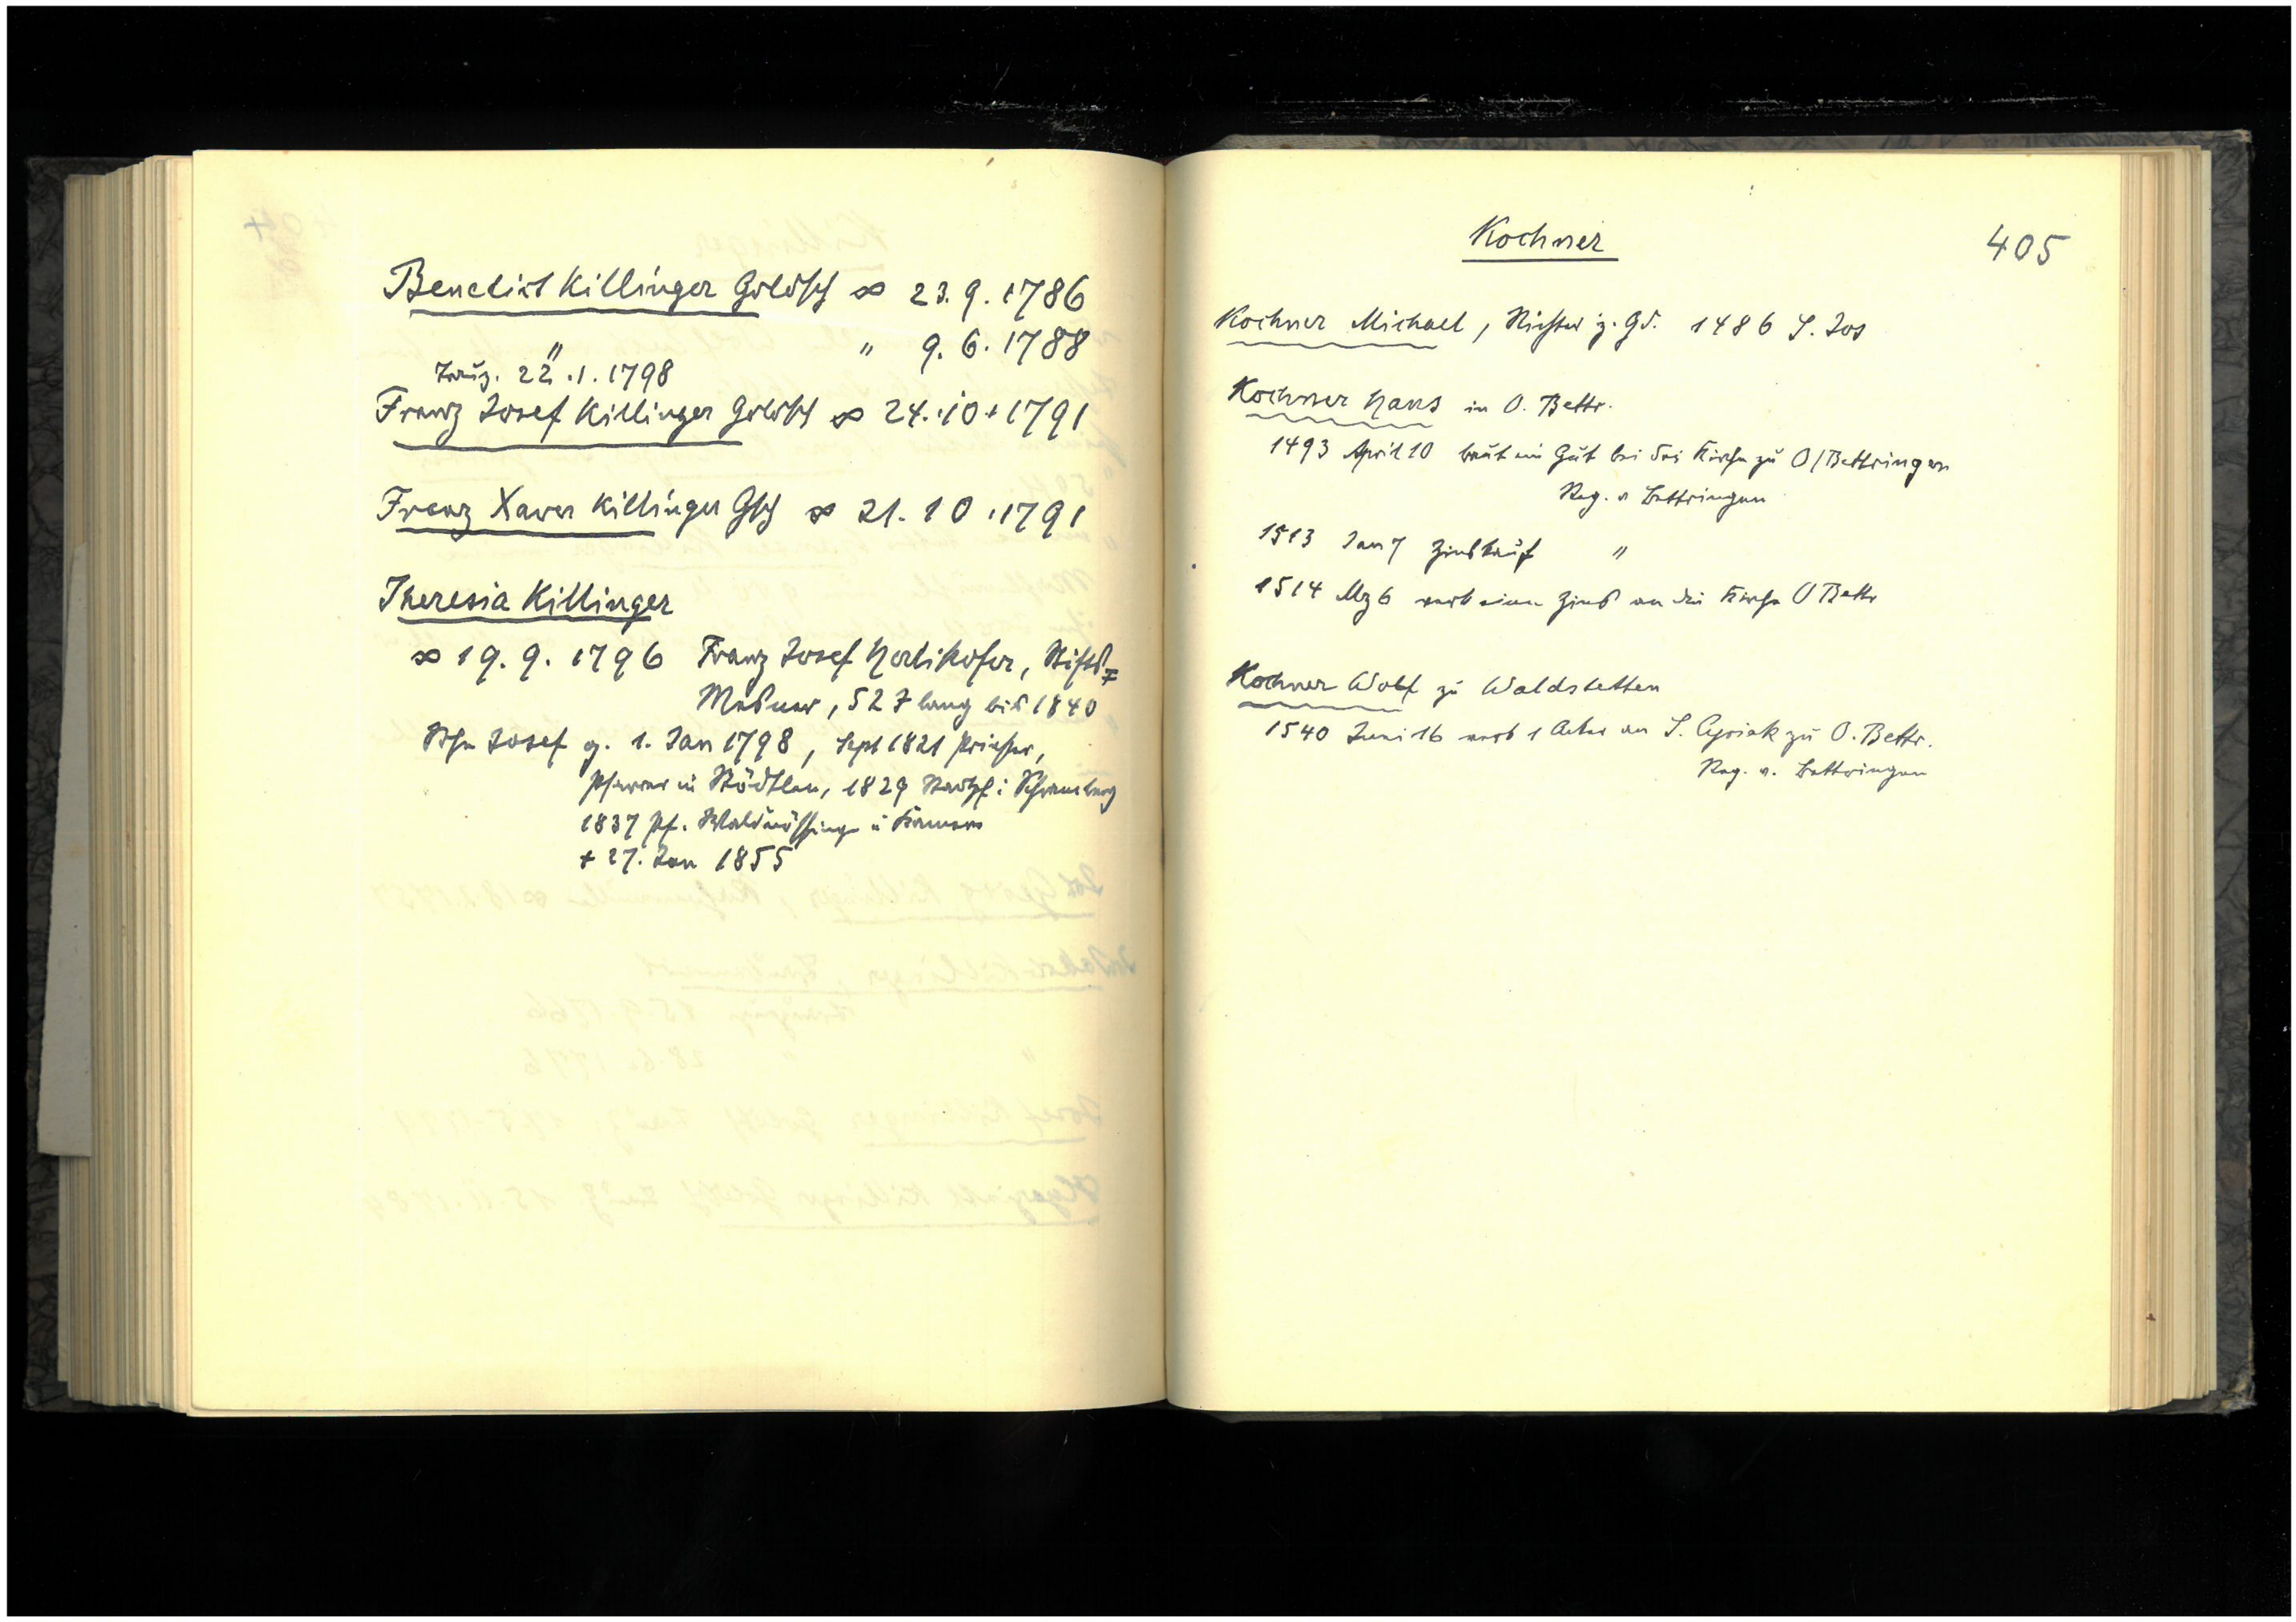 Benedict Killinger Goldsch ∞ 23.9.1786
" " 9.6.1788
Zeug. 22.1.1798
Franz Josef Killinger Goldsch ∞ 24.10.1791
Franz Xaver Killinger Gsch ∞ 21.10.1791
Theresia Killinger
∞ 19.9.1796 Franz Josef Herlikofer, Stifts=
Meßner, 52 J lang bis 1840
Sohn Josef g. 1. Jan 1798, Sept 1821 Priester,
Pfarrer in Stödtlen, 1829 Stadtpf i Schramberg
1837 Pf. Waldmössingen u Kamerer
+ 27. Jan 1855
Kochner
405
Kochner Michael, Richter z. Gd. 1486 S. Jos
Kochner Hans in O. Bettr.
1493 April 10 baut ein Gut bei der Kirche zu O/Bettringen
Reg. v Bettringen
1513 Jan 7 Zinskauf "
1514 Mz 6 verk einen Zins an die Kirche O Bettr
Kochner Wolf zu Waldstetten
1540 Juni 16 verk 1 Acker an S. Cyriak zu O. Bettr.
Reg. v. Bettringen